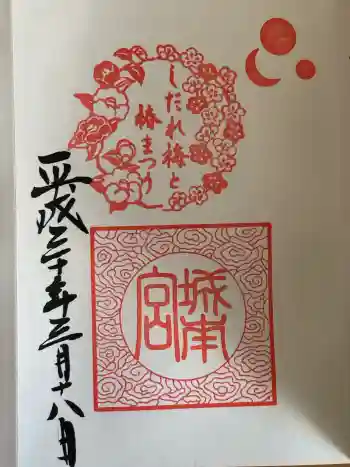 しだれ梅と
椿まつり
城南
宮
平成三十年三月十八日